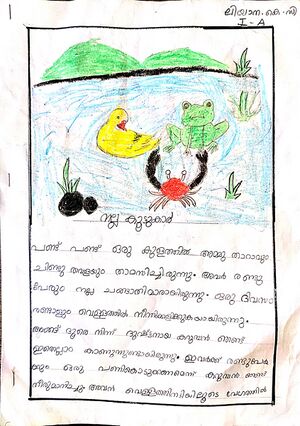 ലിയാന. കെ. വി
I - A
നല്ല കൂട്ടുകാർ
പണ്ട് പണ്ട് ഒരു കുളത്തിൽ അമ്മു താറാവും
ചിണ്ടു തവളയും താമസിച്ചിരുന്നു. അവർ രണ്ടു
പേരും നല്ല ചങ്ങാതിമാരായിരുന്നു. ഒരു ദിവസം
രണ്ടാളും വെള്ളത്തിൽ നീന്തിക്കളിക്കുകയായിരുന്നു.
അങ്ങ് ദൂരെ നിന്ന് ദുഷ്ടനായ കറുമ്പൻ ഞണ്ട്
ഇതെല്ലാം കാണുന്നുണ്ടായിരുന്നു. ഇവർക്ക് രണ്ടുപേർ
ക്കും ഒരു പണികൊടുക്കണമെന്ന് കറുമ്പൻ ഞണ്ട്
തീരുമാനിച്ചു. അവൻ വെള്ളത്തിനടിയിലൂടെ വേഗത്തിൽ